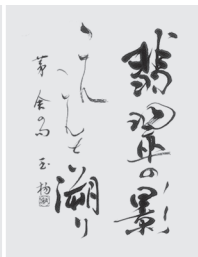 翡翠の影
こんこんと溯り
茅舎の句 玉扬